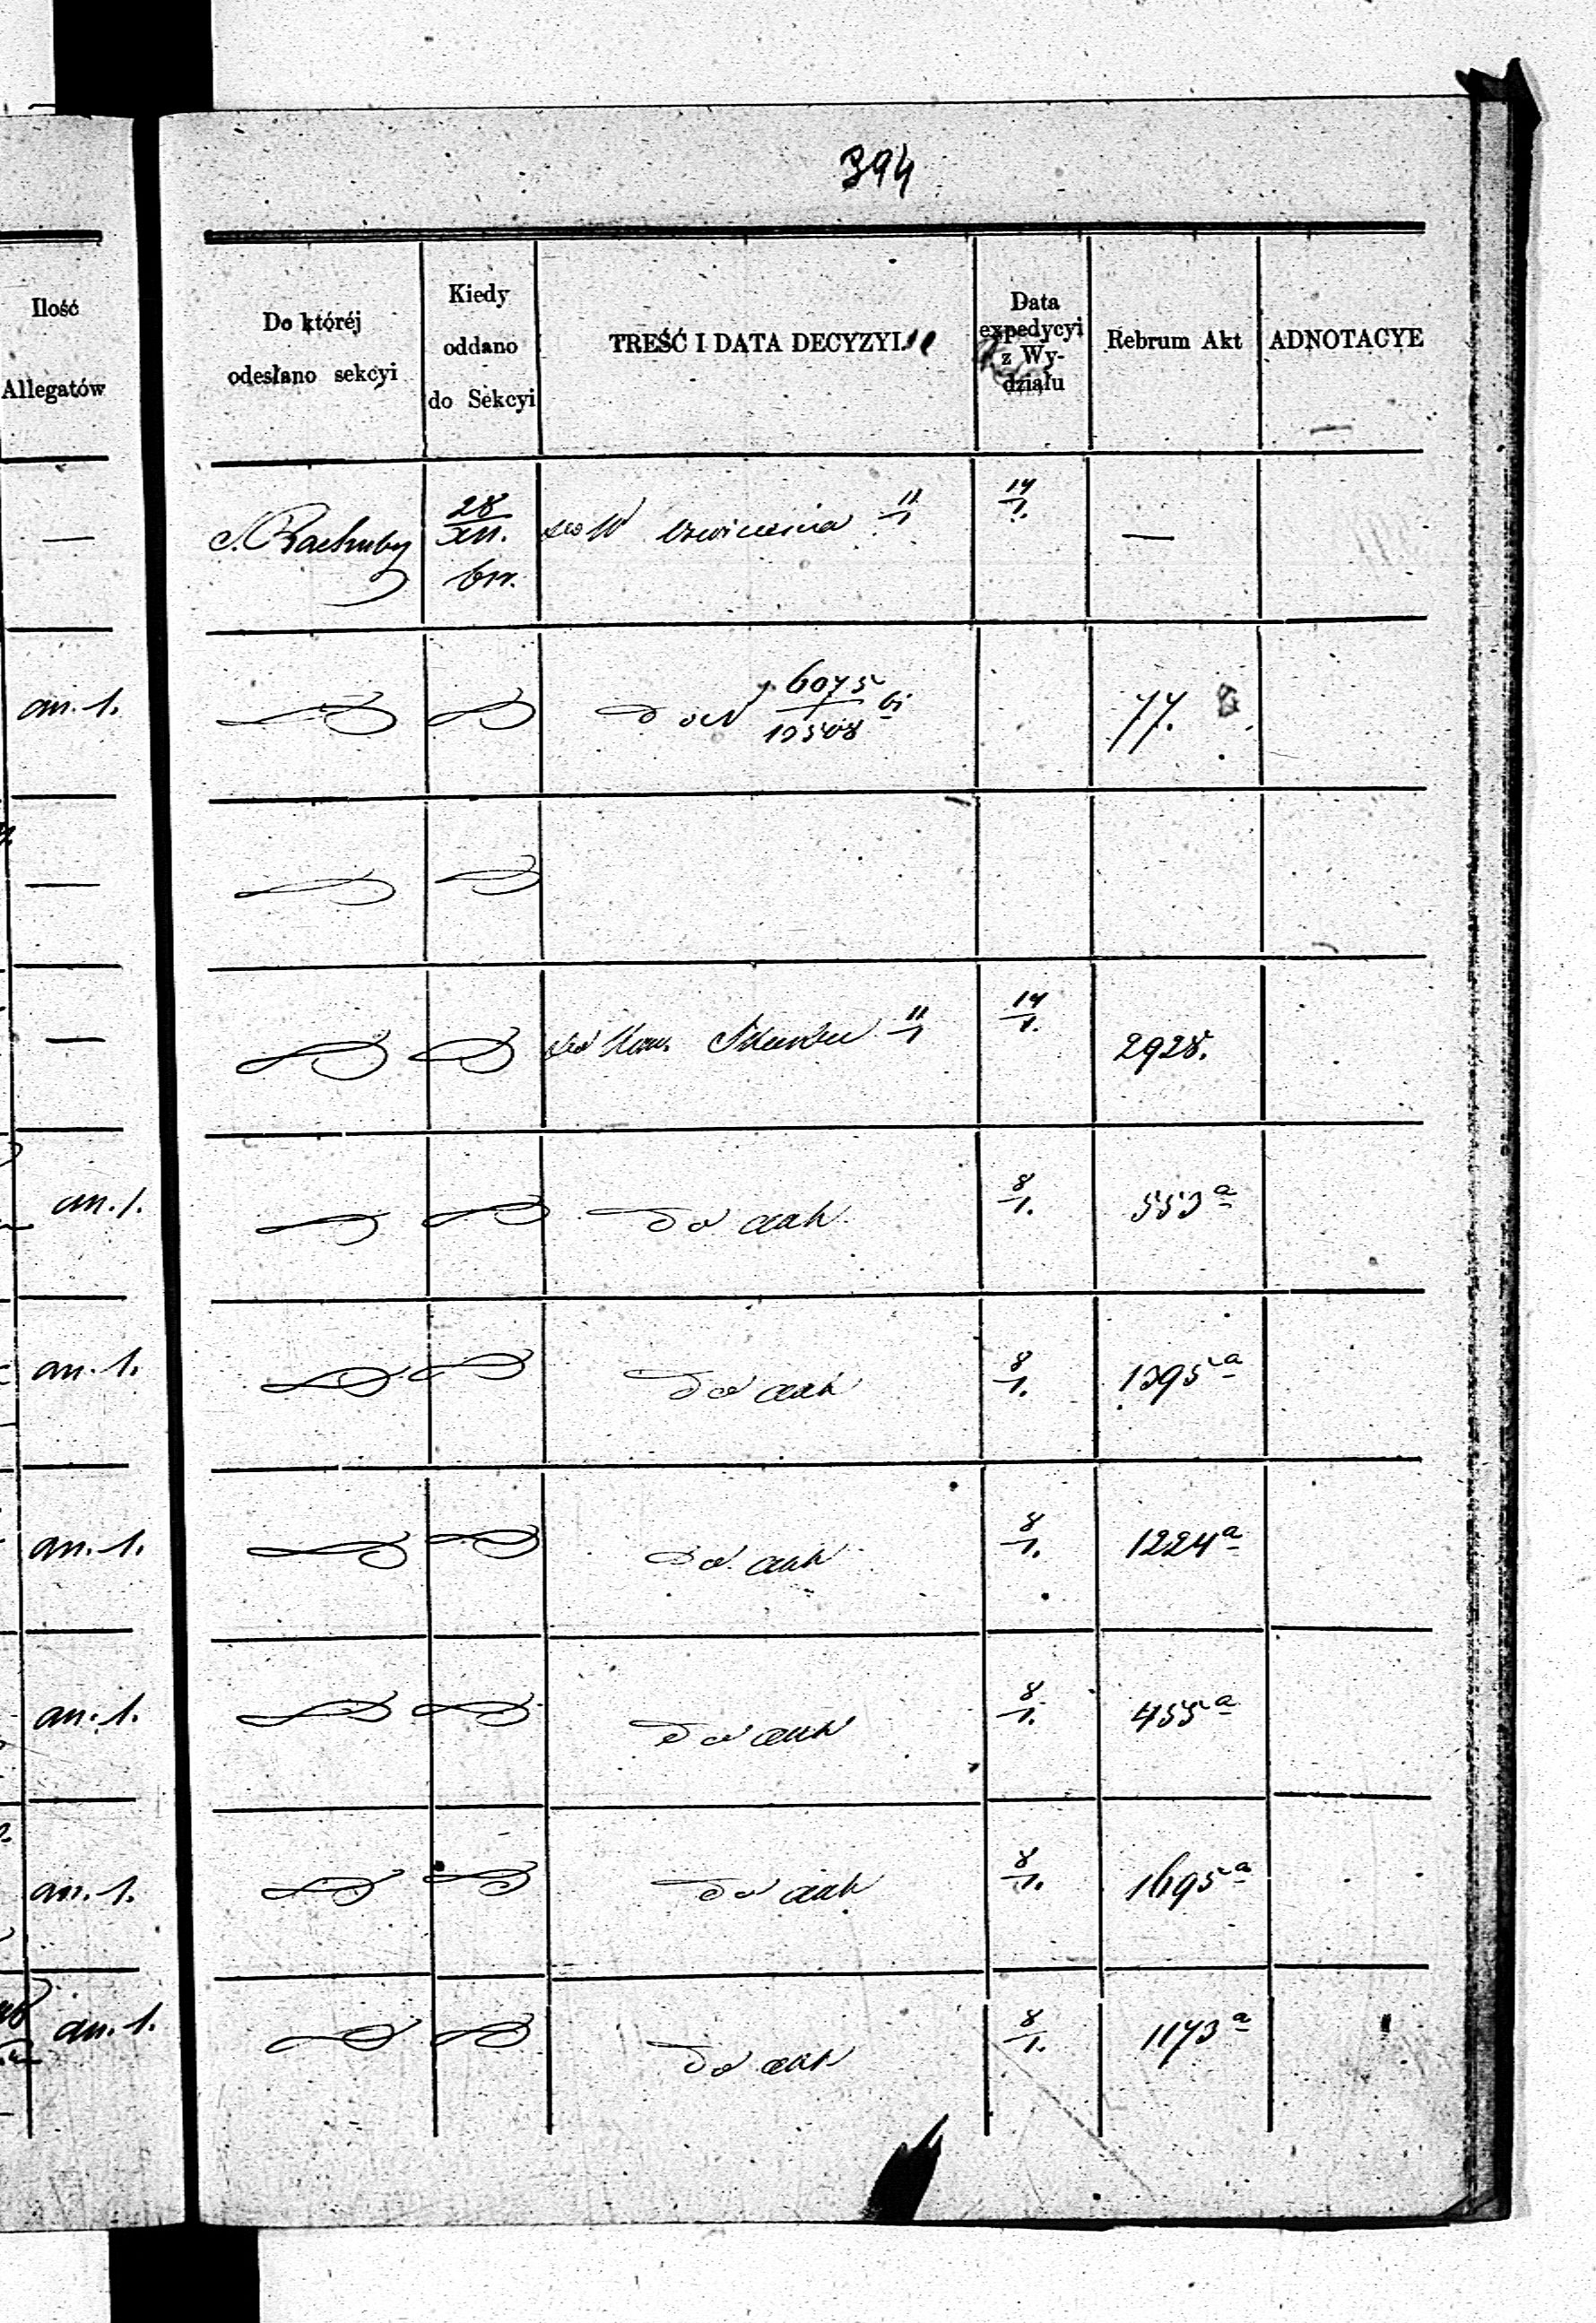 394
Ilość
Allegatów
Do któréj
odesłano sekcyi
Kiedy
oddano
do Sekcyi
TREŚĆ I DATA DECYZYI.
Data
expedycyi
z Wy-
działu
Rebrum Akt
ADNOTACYE
—
S. Rachuby
28
XII.
br.
11
1
14
1.
—
an. 1.
do N 6075
12508
77.
—
—
11
1
14
1.
2928.
an. 1.
do akt
8
1.
553 a
an. 1.
do akt
8
1.
1395 a
an. 1.
do akt
8
1.
1224 a
an. 1.
do akt
8
1.
455 a
an. 1.
do akt
8
1.
1695 a
an. 1.
do akt
8
1.
1173 a